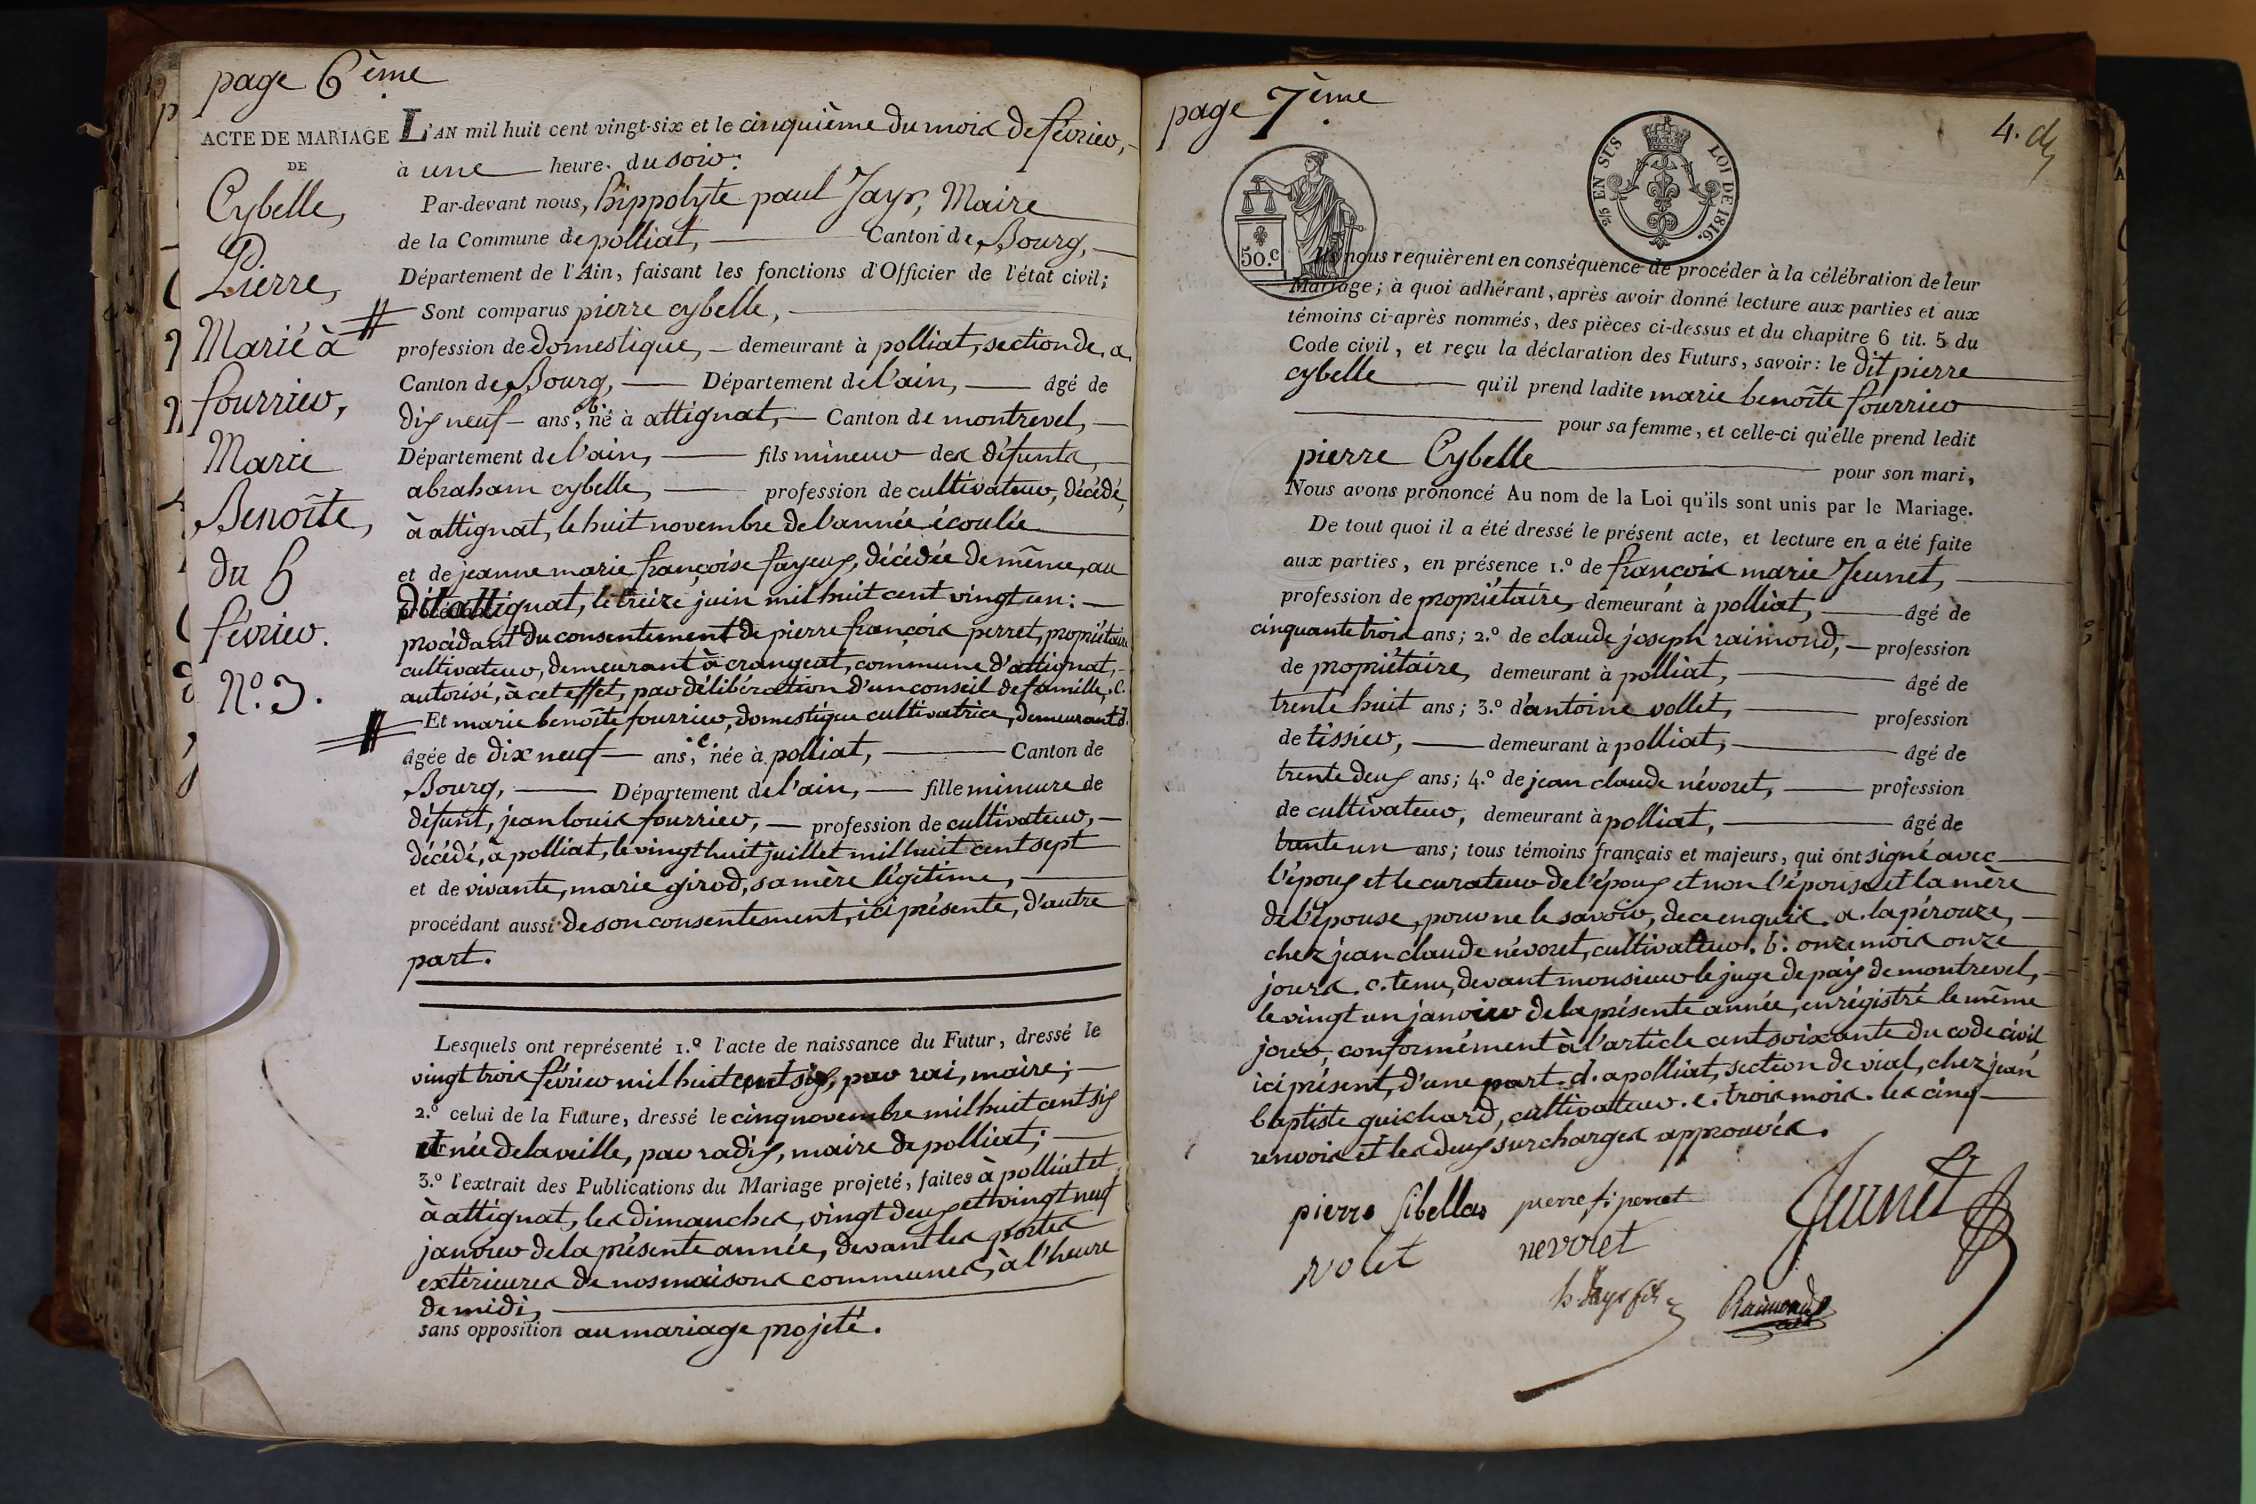 page 6ème
ACTE DE MARIAGE
DE
Cybelle,
Pierre,
Marié à
fourrier,
Marie
Benoîte,
du 5
février.
N.º 3.
L'AN mil huit cent vingt-six et le cinquième du mois de février,
à une heure. du soir:
Par-devant nous, hippolyte paul Jayr, Maire
de la Commune de polliat, Canton de Bourg,
Département de l'Ain, faisant les fonctions d'Officier de l'état civil;
Sont comparus pierre cybelle,
profession de domestique, demeurant à polliat, section de, a.
Canton de Bourg, Département de l'ain, âgé de
dix neuf ans, b. né à attignat, Canton de montrevel,
Département de l'ain, fils mineur des défunts,
abraham cybelle, profession de cultivateur, décédé,
à attignat, le huit novembre de l'année écoulée
et de jeanne marie françoise fayeux, décédée de même, au
dit attignat, le treize juin mil huit cent vingt un:
procédant du consentement de pierre françois perret, propriétaire
cultivateur, demeurant à crangeat, commune d'attignat,
autorisé, à cet effet, par délibération d'un conseil de famille, c.
Et marie benoîte fourrier, domestique cultivatrice, demeurant d.
âgée de dix neuf ans, e. née à polliat, Canton de
Bourg, Département de l'ain, fille mineure de
défunt, jean louis fourrier, profession de cultivateur,
décédé, à polliat, le vingt huit juillet mil huit cent sept
et de vivante, marie girod, sa mère légitime,
procédant aussi de son consentement, ici présente, d'autre
part.
Lesquels ont représenté 1.º l'acte de naissance du Futur, dressé le
vingt trois février mil huit cent six, par roi, maire;
2.º celui de la Future, dressé le cinq novembre mil huit cent six
et née de la veille, par radix, maire de polliat;
3.º l'extrait des Publications du Mariage projeté, faites à polliat et
à attignat, les dimanches, vingt deux et vingt neuf
janvier de la présente année, devant les portes
extérieures de nos maisons communes, à l'heure
de midi,
sans opposition au mariage projeté.
page 7ème
4.
50.c
2/5 EN SUS
LOI DE 1816.
Ils nous requièrent en conséquence de procéder à la célébration de leur
Mariage; à quoi adhérant, après avoir donné lecture aux parties et aux
témoins ci-après nommés, des pièces ci-dessus et du chapitre 6 tit. 5 du
Code civil, et reçu la déclaration des Futurs, savoir: le dit pierre
cybelle qu'il prend ladite marie benoîte fourrier
pour sa femme, et celle-ci qu'elle prend ledit
pierre Cybelle pour son mari,
Nous avons prononcé Au nom de la Loi qu'ils sont unis par le Mariage.
De tout quoi il a été dressé le présent acte, et lecture en a été faite
aux parties, en présence 1.º de françois marie Jeunet,
profession de propriétaire, demeurant à polliat, âgé de
cinquante trois ans; 2.º de claude joseph raimond, profession
de propriétaire, demeurant à polliat, âgé de
trente huit ans; 3.º d'antoine vollet, profession
de tissier, demeurant à polliat, âgé de
trente deux ans; 4.º de jean claude névoret, profession
de cultivateur, demeurant à polliat, âgé de
trente un ans; tous témoins français et majeurs, qui ont signé avec
l'époux et le curateur de l'époux et non l'épouse et la mère
de l'épouse, pour ne le savoir, de ce enquis. a. la pérouze,
chez jean claude névoret, cultivateur. b. onze mois onze
jours. c. tenu, devant monsieur le juge de paix de montrevel,
le vingt un janvier de la présente année, enrégistré le même
jour, conformément à l'article cent soixante du code civil
ici présent, d'une part. d. a polliat, section de vial, chez jean
baptiste guichard, cultivateur. e. trois mois. les cinq
renvois et les deux surcharges approuvés.
pierre Sibellas pierre f. perret Jeunet
volet nevoret
h Jayr fils Raimond